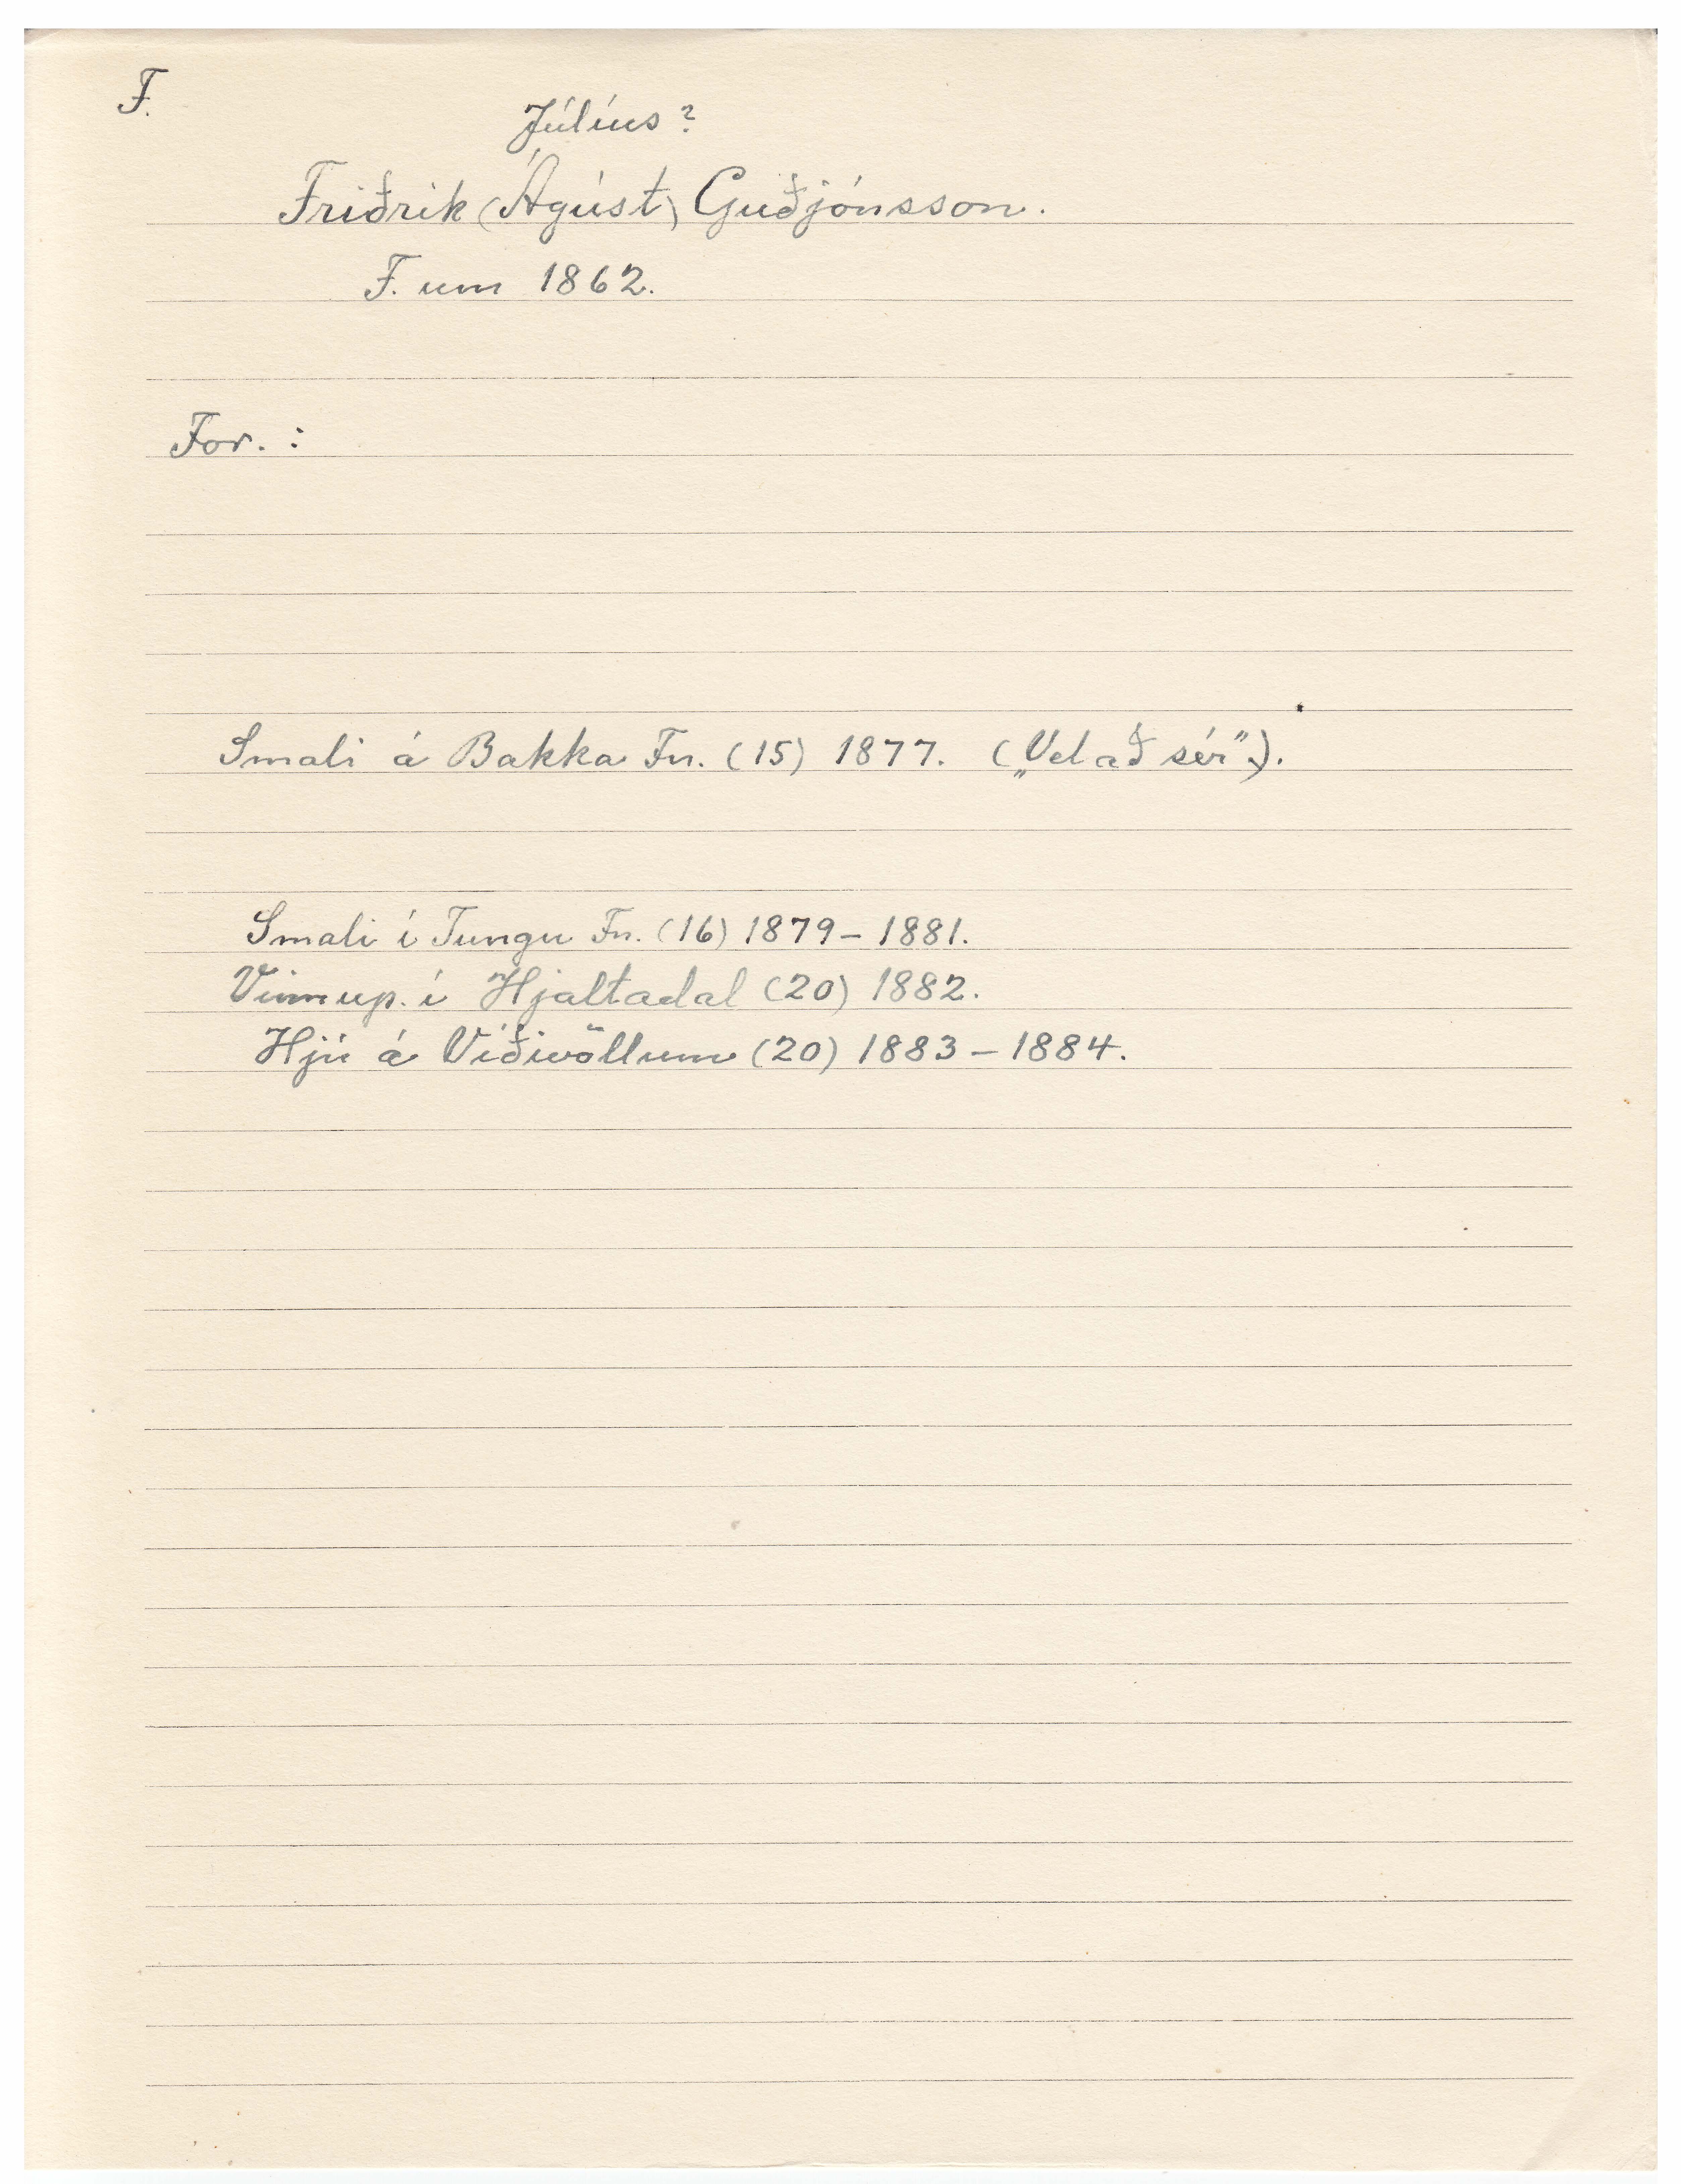 F.
Júlíus?
Friðrik (Ágúst) Guðjónsson.
F. um 1862.
For. :
Smali á Bakka Fn. (15) 1877. („Vel að sér”).
Smali í Tungu Fn. (16) 1879 – 1881.
Vinnup. í Hjaltadal (20) 1882.
Hjú á Víðivöllum (20) 1883 – 1884.